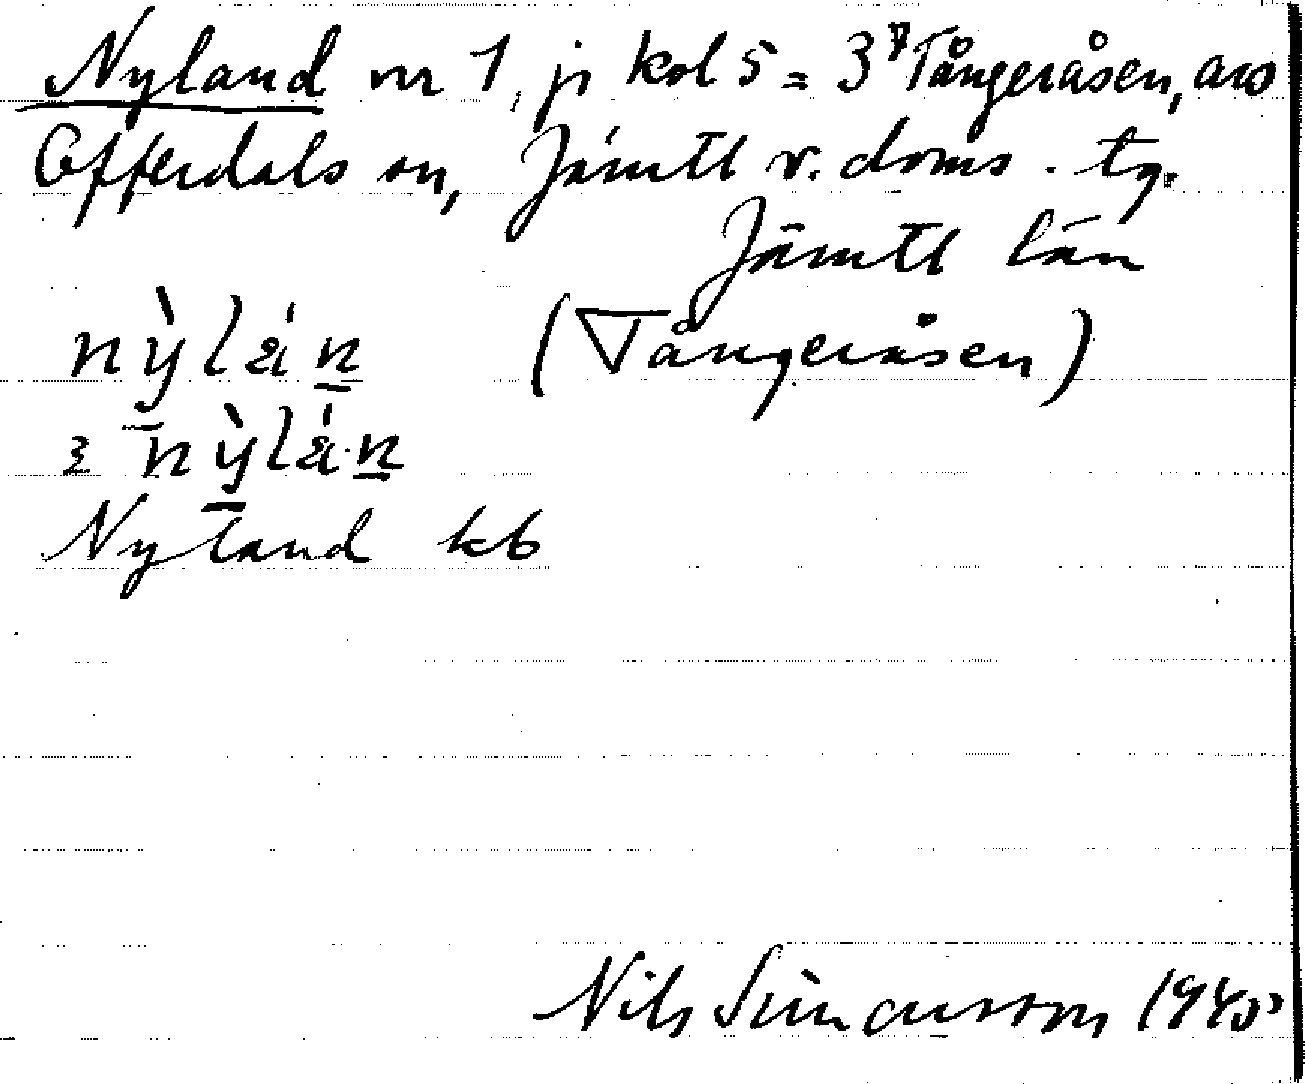 Nyland nr 1, ji kol 5 = 3⁷ Tångeråsen, avs
Offerdals sn, Jämtl v. doms. tg.
Jämtl län
nỳlán (Tångeråsen)
nỳlán
Nyland kb
Nils Simonsson 1940